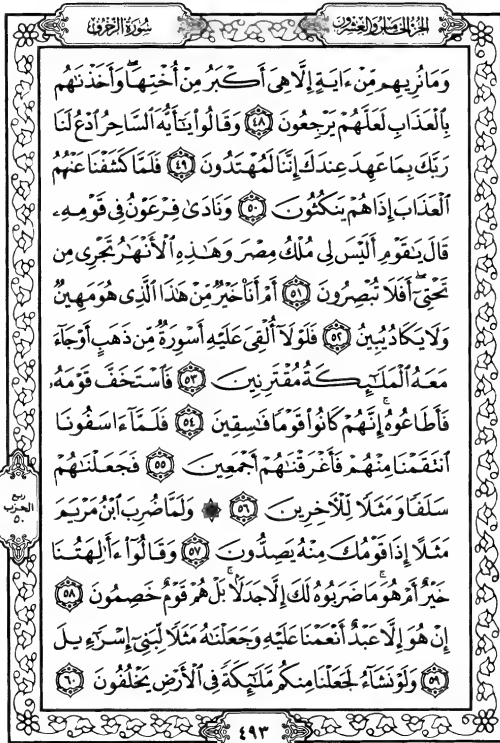 سورة الزخرف
الجزء الخامس والعشرون
وَمَا نُرِيهِم مِّنْ ءَايَةٍ إِلَّا هِيَ أَكْبَرُ مِنْ أُخْتِهَا ۖ وَأَخَذْنَٰهُم
بِالْعَذَابِ لَعَلَّهُمْ يَرْجِعُونَ ٤٨ وَقَالُوا۟ يَٰٓأَيُّهَ السَّاحِرُ ادْعُ لَنَا
رَبَّكَ بِمَا عَهِدَ عِندَكَ إِنَّنَا لَمُهْتَدُونَ ٤٩ فَلَمَّا كَشَفْنَا عَنْهُمُ
الْعَذَابَ إِذَا هُمْ يَنكُثُونَ ٥٠ وَنَادَىٰ فِرْعَوْنُ فِي قَوْمِهِۦ
قَالَ يَٰقَوْمِ أَلَيْسَ لِي مُلْكُ مِصْرَ وَهَٰذِهِ الْأَنْهَٰرُ تَجْرِي مِن
تَحْتِيٓ ۖ أَفَلَا تُبْصِرُونَ ٥١ أَمْ أَنَا۠ خَيْرٌ مِّنْ هَٰذَا الَّذِي هُوَ مَهِينٌ
وَلَا يَكَادُ يُبِينُ ٥٢ فَلَوْلَآ أُلْقِيَ عَلَيْهِ أَسْوِرَةٌ مِّن ذَهَبٍ أَوْ جَآءَ
مَعَهُ الْمَلَٰٓئِكَةُ مُقْتَرِنِينَ ٥٣ فَاسْتَخَفَّ قَوْمَهُۥ
فَأَطَاعُوهُ ۚ إِنَّهُمْ كَانُوا۟ قَوْمًا فَٰسِقِينَ ٥٤ فَلَمَّآ ءَاسَفُونَا
انتَقَمْنَا مِنْهُمْ فَأَغْرَقْنَٰهُمْ أَجْمَعِينَ ٥٥ فَجَعَلْنَٰهُمْ
سَلَفًا وَمَثَلًا لِّلْءَاخِرِينَ ٥٦ ۞ وَلَمَّا ضُرِبَ ابْنُ مَرْيَمَ
مَثَلًا إِذَا قَوْمُكَ مِنْهُ يَصِدُّونَ ٥٧ وَقَالُوٓا۟ ءَأَٰلِهَتُنَا
خَيْرٌ أَمْ هُوَ ۚ مَا ضَرَبُوهُ لَكَ إِلَّا جَدَلًۢا ۚ بَلْ هُمْ قَوْمٌ خَصِمُونَ ٥٨
إِنْ هُوَ إِلَّا عَبْدٌ أَنْعَمْنَا عَلَيْهِ وَجَعَلْنَٰهُ مَثَلًا لِّبَنِيٓ إِسْرَٰٓءِيلَ
٥٩ وَلَوْ نَشَآءُ لَجَعَلْنَا مِنكُم مَّلَٰٓئِكَةً فِي الْأَرْضِ يَخْلُفُونَ ٦٠
ربع
الحزب
٥٠
٤٩٣